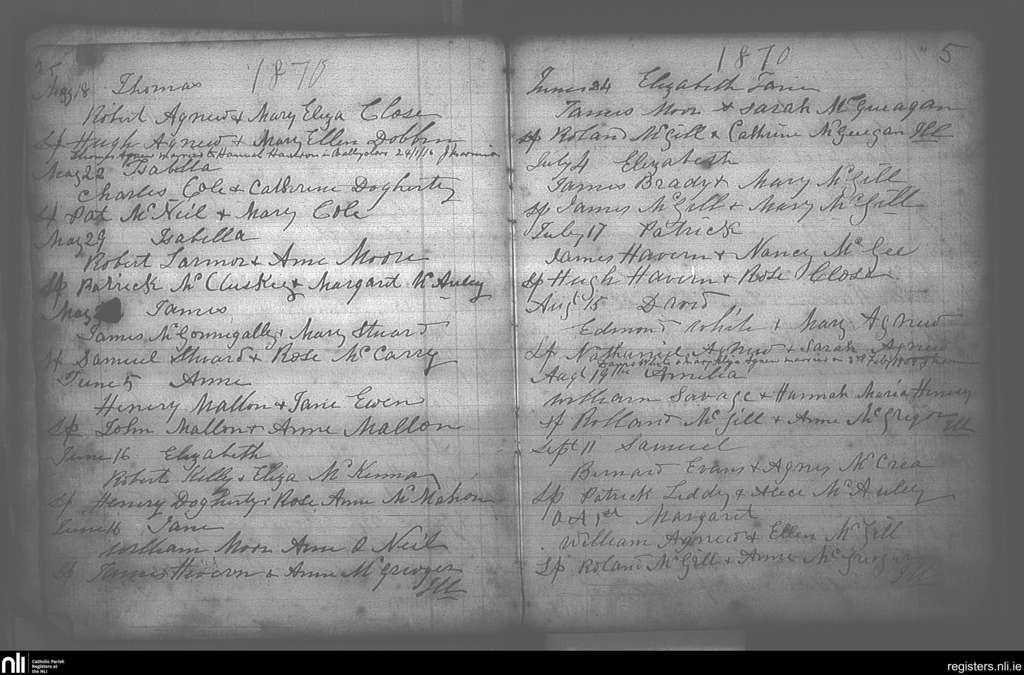 1870
May 18 Thomas
Robert Agnew & Mary Eliza Close
Sp Hugh Agnew & Mary Ellen Dobbin
Thomas Agnew married to Hannah 24/1/16
May 22 Isabella
Charles Cole & Catherine Dogherty
Sp Pat McNeil & Mary Cole
May 29 Isabella
Robert Larmor & Anne Moore
Sp Patrick McCluskey & Margaret McAuley
May James
James McConnegally & Mary Stuard
Sp Samuel Stuard & Rose McCarry
June 5 Anne
Henery Mallon & Jane Ewen
Sp John Mallon & Anne Mallon
June 16 Elizabeth
Robert Kelly & Eliza McKenna
Sp Henery Dogherty & Rose Anne McMahon
June 16 Jane
William Moor Anne O Neil
Sp James Havern & Anne McGrieger
Ill
1870 5
June 24 Elizabeth Jane
James Moor & Sarah McGueagan
Sp Roland McGill & Cathrine McGuegan Ill
July 4 Elizabeth
James Brady & Mary McGill
Sp James McGill & Mary McGill
July 17 Patrick
James Havern & Nancy McGee
Sp Hugh Havern & Rose Close
Aug 15 David
Edmond White & Mary Agnew
Sp Nathaniel Agnew & Sarah Agnew
married on
Aug 19th Amelia
William Savage & Hannah Maria Henery
Sp Rolland McGill & Anne McGregor Ill
Sept 11 Samuel
Bernard Evans & Agnes McCrea
Sp Patrick Liddy & Alece McAuley
Oct 1st Margaret
William Agnew & Ellen McGill
Sp Roland McGill & Anne McGregor Ill
nli Catholic Parish
Registers at
the NLI
registers.nli.ie